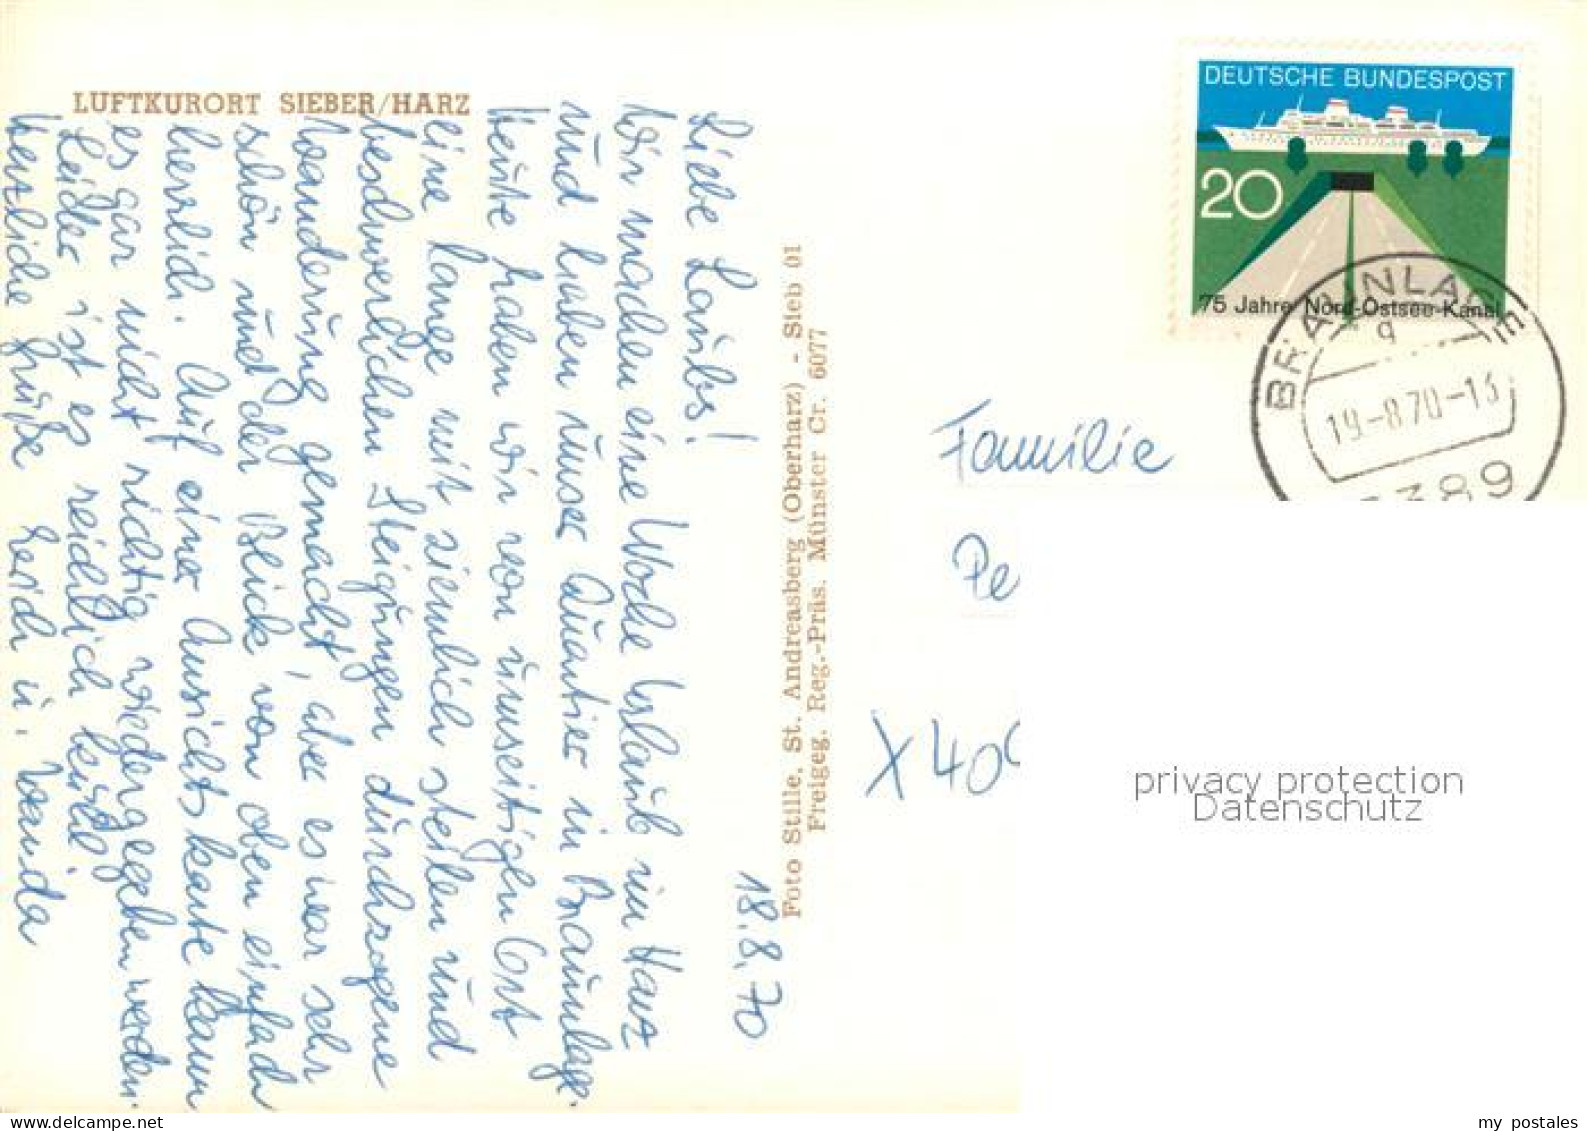 LUFTKURORT SIEBER/HARZ
18.8.70
Liebe Laubs!
Wir machen eine Woche Urlaub im Harz
und haben unser Quartier in Braunlage.
Heute haben wir von umseitigen Ort
eine lange mit ziemlich steilen und
beschwerlichen Steigungen durchzogene
Wanderung gemacht, aber es war sehr
schön und der Blick von oben einfach
herrlich. Auf einer Ansichtskarte kann
es gar nicht richtig wiedergegeben werden.
Leider ist es reichlich kühl.
Herzliche Grüße u. Wanda
Foto Stille, St. Andreasberg (Oberharz) - Sieb 01
Freigeg. Reg.-Präs. Münster Cr. 6077
DEUTSCHE BUNDESPOST
20
75 Jahre Nord-Ostsee-Kanal
BRAUNLAGE
19.-8.70-13
3389
Familie
Pe
X 40
privacy protection
Datenschutz
www.delcampe.net
my_postales